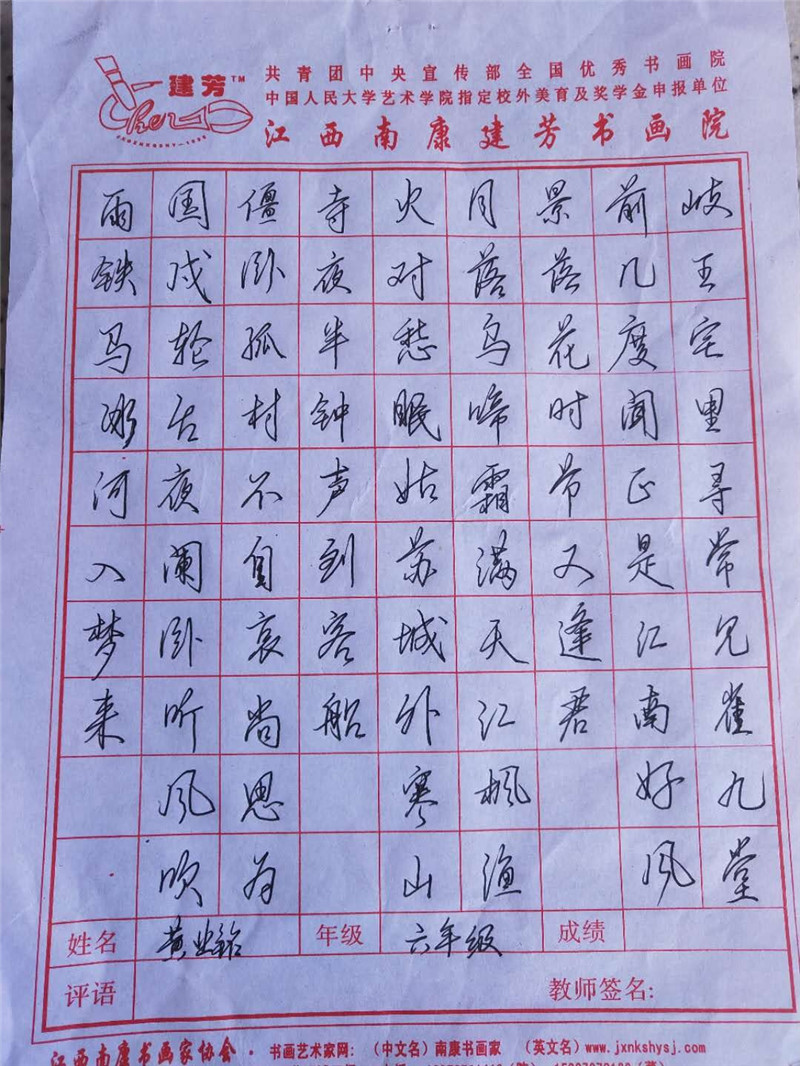 建芳™
共青团中央宣传部全国优秀书画院
中国人民大学艺术学院指定校外美育及奖学金申报单位
江西南康建芳书画院
岐王宅里寻常见崔九堂
前几度闻正是江南好风
景落花时节又逢君
月落乌啼霜满天江枫渔
火对愁眠姑苏城外寒山
寺夜半钟声到客船
僵卧孤村不自哀尚思为
国戍轮台夜阑卧听风吹
雨铁马冰河入梦来
姓名 年级 六年级 成绩
评语 教师签名:
江西南康书画家协会 · 书画艺术家网: (中文名)南康书画家 (英文名)www.jxnkshysj.com